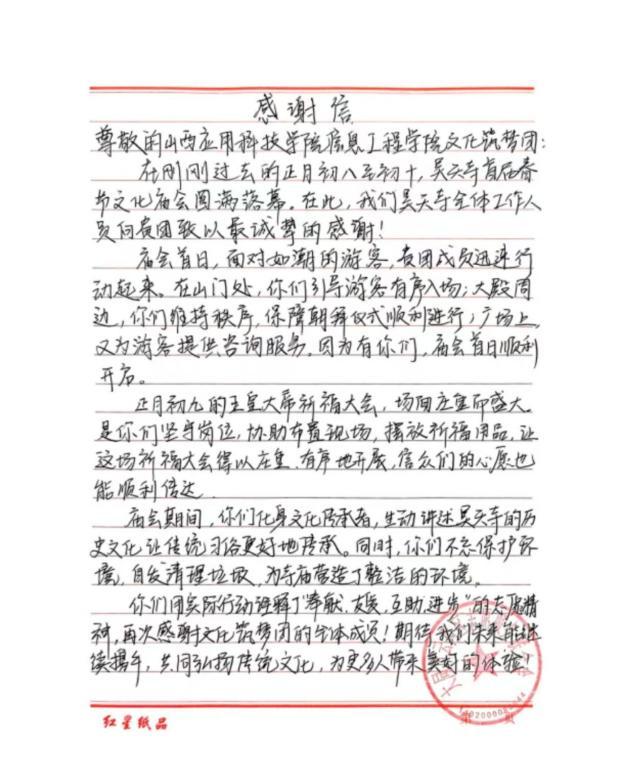 感谢信
尊敬的山西应用科技学院信息工程学院文化筑梦团：
在刚刚过去的正月初八至初十，昊天寺首届春
节文化庙会圆满落幕。在此，我们昊天寺全体工作人
员向贵团致以最诚挚的感谢！
庙会首日，面对如潮的游客，贵团成员迅速行
动起来。在山门处，你们引导游客有序入场；大殿周
边，你们维持秩序，保障朝拜仪式顺利进行；广场上，
又为游客提供咨询服务。因为有你们，庙会首日顺利
开启。
正月初九的玉皇大帝祈福大会，场面庄重而盛大。
是你们坚守岗位，协助布置现场，摆放祈福用品，让
这场祈福大会得以庄重、有序地开展，信众们的心愿也
能顺利传达。
庙会期间，你们化身文化传承者，生动讲述昊天寺的历
史文化，让传统习俗更好地传承。同时，你们不忘保护环
境，自发清理垃圾，为寺庙营造了整洁的环境。
你们用实际行动诠释了“奉献、友爱、互助、进步”的志愿精
神，再次感谢文化筑梦团的全体成员！期待我们未来能继
续携手，共同弘扬传统文化，为更多人带来美好的体验！
红星纸品
第 页